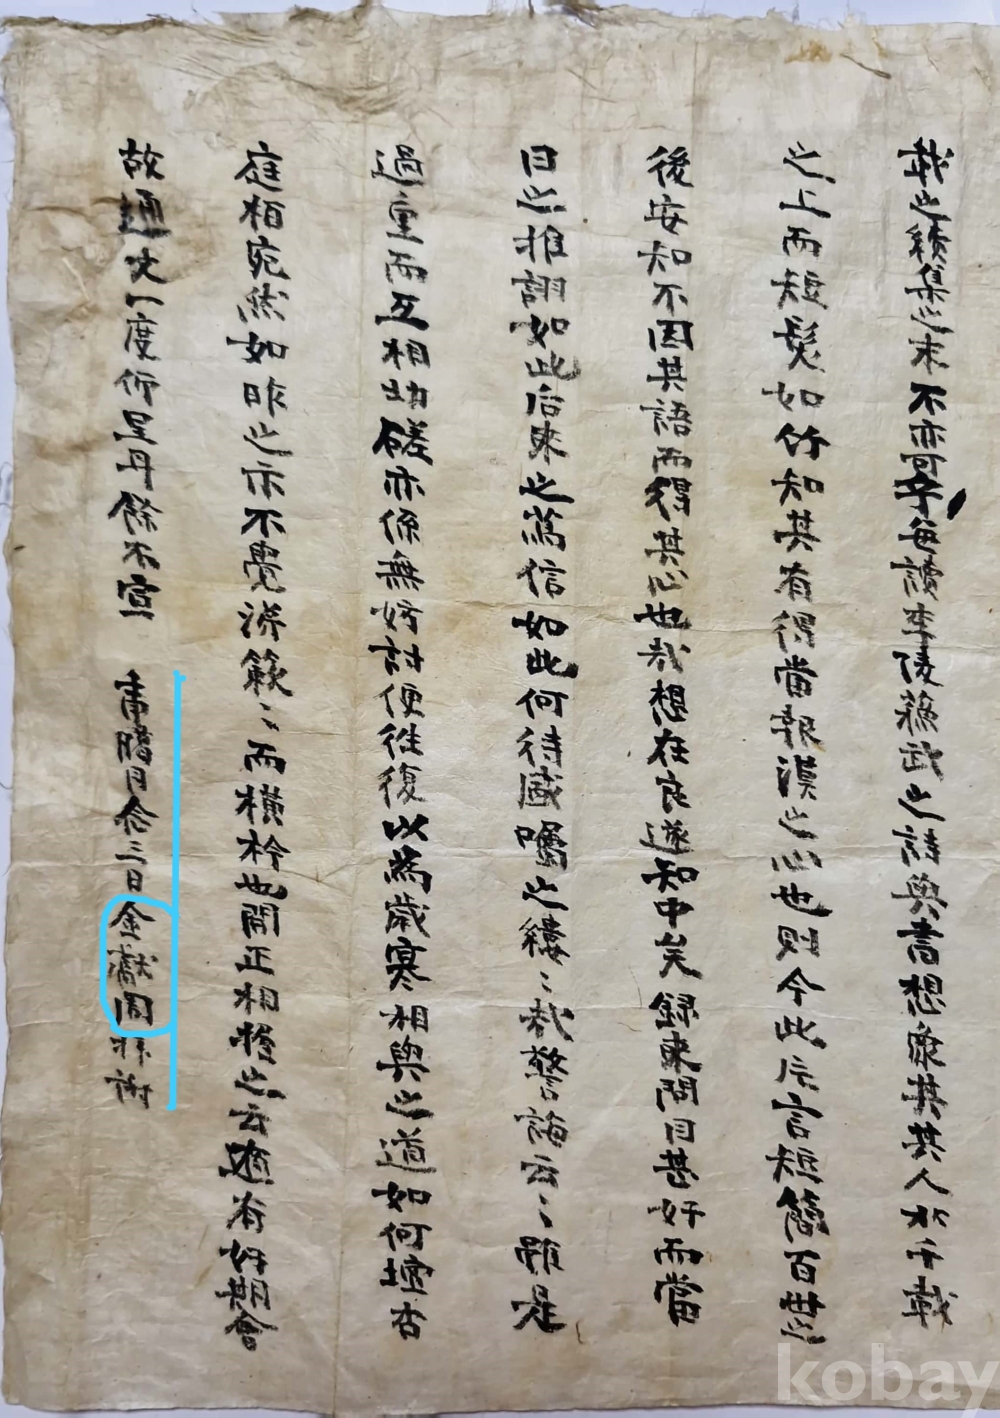 哉之續集之末不亦可乎每讀李陵蘇武之詩與書想像其共人於千載
之上而短髮如竹知其有得當報漢之心也則今此片言短簡百世之
後安知不因其語而得其心也哉想在良遂知中矣錄來問目甚好而當
日之推詡如此后來之爲信如此何待盛囑之縷〻哉警誨云〻雖是
過重而互相切磋亦係無妨討便往復以爲歲寒相與之道如何壇杏
庭栢宛然如昨之示不覺游簸〻而橫衿也開正相握之云適有好期會
故通文一度伻呈耳餘不宣
臘月念三日金獻周拜謝
kobay